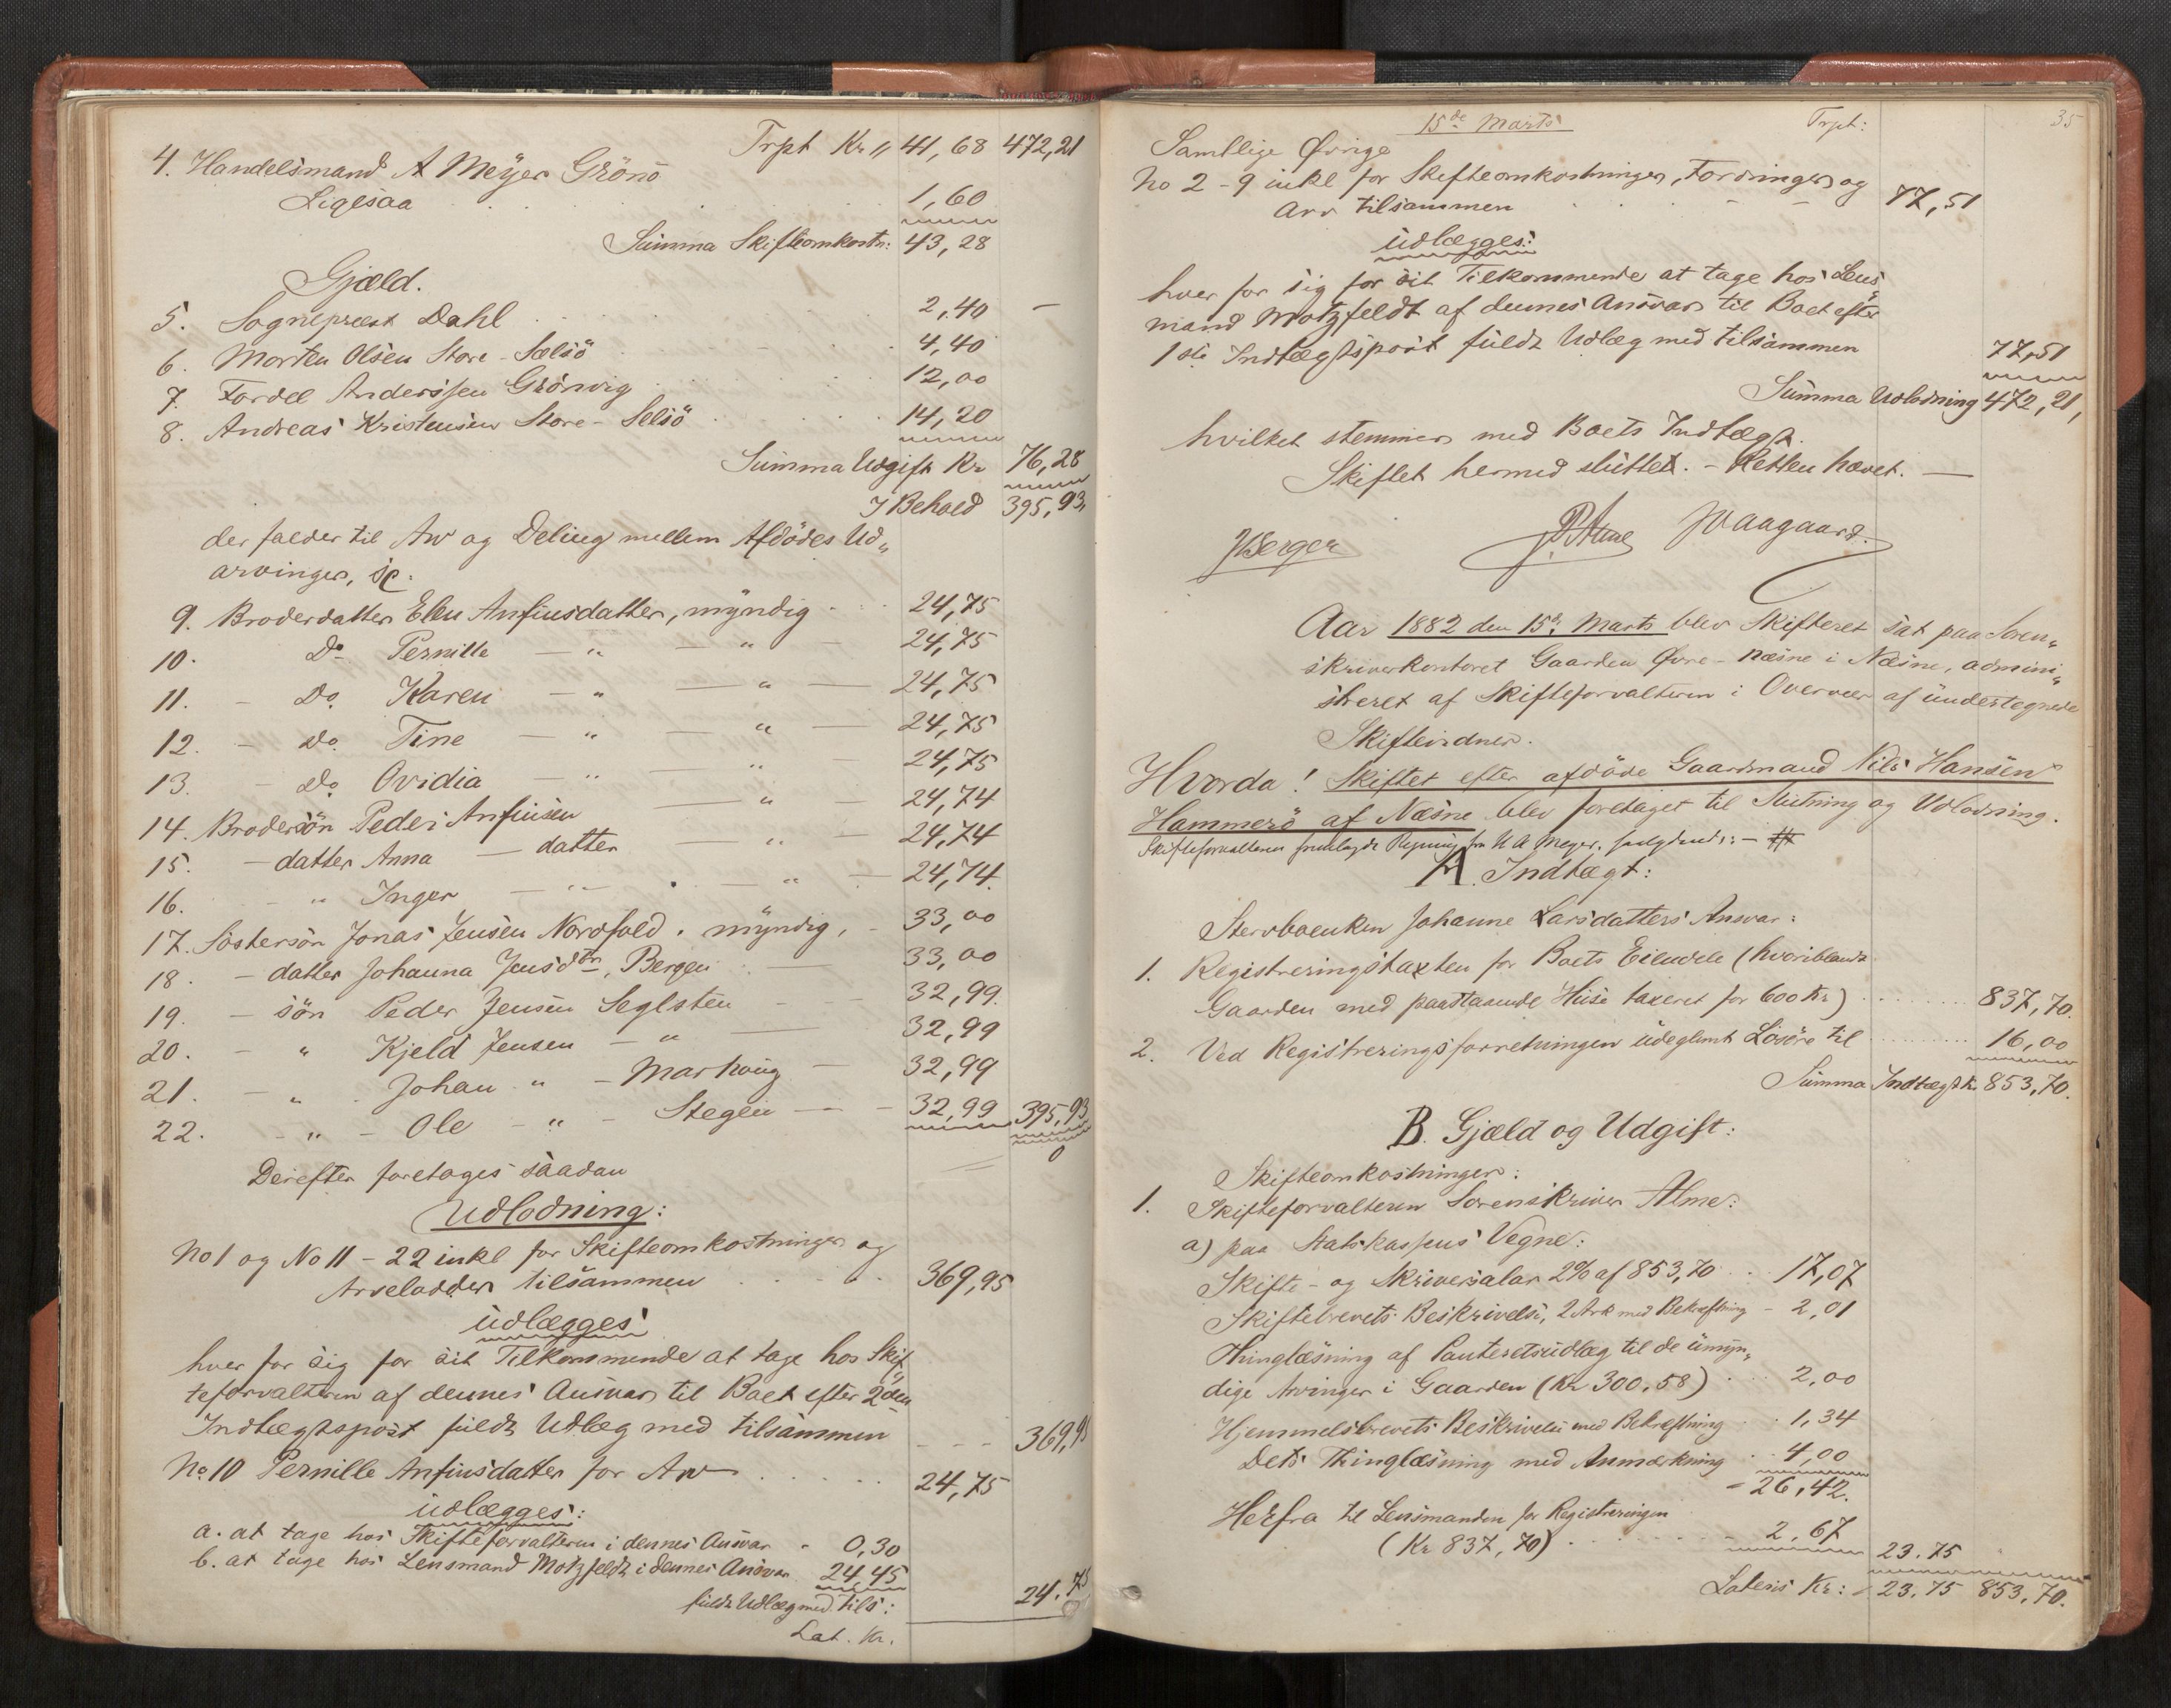 Trpt Kr „ 41,68 472,21
4. Handelsmand A Meyer Grönö
Ligesaa 1,60
Summa Skifteomkostn: 43,28
Gjæld.
5. Sognepræst Dahl 2,40 —
6. Morten Olsen Store-Selsö 4,40
7. Tordel Anderssen Grönvig 12,00
8. Andreas Kristensen Store-Selsö 14,20
Summa Udgift Kr 76,28
I Behold 395,93,
der falder til Arv og Deling mellem Afdödes Ud„
arvinger, sc:
9. Broderdatter Elen Anfinsdatter, myndig 24,75
10. Do Pernille — „ — „ — 24,75
11. - Do. Karen — „ — „ — 24,75
12. - Do. Tine — „ — „ — 24,75
13. - Do. Ovidia — „ — „ — 24,75
14. Brodersön Peder Anfinsen — „ — 24,74
15. — datter Anna — datter — „ — 24,74
16. - „ Inger — „ — . — „ — 24,74.
17. Söstersön Jonas Jensen Nordfold. myndig, - 33,00
18. - datter Johanna Jensdtr, Bergen — 33,00
19. - sön Peder Jensen Seglsten - - - 32,99.
20. - „ Kjeld Jensen - „ — 32,99
21. - „ Johan „ - Markoug — 32,99
22. - „ - Ole - „ - Stegen — - 32,99 395,93
0
Derefter foretages saadan
Udlodning:
No 1 og No 11 - 22 inkl for Skifteomkostninger og
Arvelodder tilsammen 369,95
udlægges
hver for sig for sit Tilkommende at tage hos Skif„
teforvalteren af dennes Ansvar til Boet efter 2den
Indtægtspost fuldt Udlæg med tilsammen - - - 369,95
No. 10 Pernille Anfinsdatter for Arv 24,75
udlægges:
a. at tage hos Skifteforvalteren i dennes Ansvar - 0,30
b. at tage hos Lensmand Motzfeldt i dennes Ansvar 24,45
fuldt Udlæg med tils: 24.75
Lat. Kr.
15de Marts Trpt: 35
Samtlige Øvrige
No 2 - 9 inkl for Skifteomkostninger, Fordringer og
Arv tilsammen 77,51
udlægges:
hver for sig for sit Tilkommende at tage hos Lens„
mand Motzfeldt af dennes Ansvar til Boet efter
1ste Indtægtspost fuldt Udlæg med tilsammen 77,51
Summa Udlodning 472,21,
hvilket stemmer med Boets Indtægt.
Skiftet hermed sluttet. - Retten hævet. —
JBerger PAlme JVaagaard.
Aar 1882 den 15de Marts blev Skifteret sat paa Soren„
skriverkontoret Gaarden Øvre-Næsne i Næsne, admini„
streret af Skifteforvalteren i Overvær af undertegnede
Skiftevidner.
Hvorda! Skiftet efter afdöde Gaardmand Nils Hansen
Hammerö af Næsne blev foretaget til Slutning og Udlodning.
Skifteforvalteren fremlagde Regning fra H A Meyer. saalydende: - #
A. Indtægt:
Stervboenken Johanne Larsdatters Ansvar:
1. Registreringstaxten for Boets Eiendele (hvoriblandt
Gaarden med paastaaende Huse taxeret for 600 Kr) 837,70.
2. Ved Registreringsforretningen udeglemt Lösöre til 16,00
Summa Indtægt Kr. 853,70.
B. Gjæld og Udgift:
Skifteomkostninger:
1. Skifteforvalteren Sorenskriver Alme:
a) paa Statskassens Vegne:
Skifte- og Skriversalar 2% af 853,70 17,07
Skiftebrevets Beskrivelse, 2 Ark med Bekræftning - 2,01
Thinglæsning af Panteretsudlæg til de umyn„
dige Arvinger i Gaarden (Kr 300,58) 2,00
Hjemmelsbrevets Beskrivelse med Bekræftning 1,34
Dets Thinglæsning med Anmærkning 4,00
- 26,42.
Herfra til Lensmanden for Registreringen
(Kr 837,70) 2,67 23.75
Lateris Kr: - 23.75 853,70.